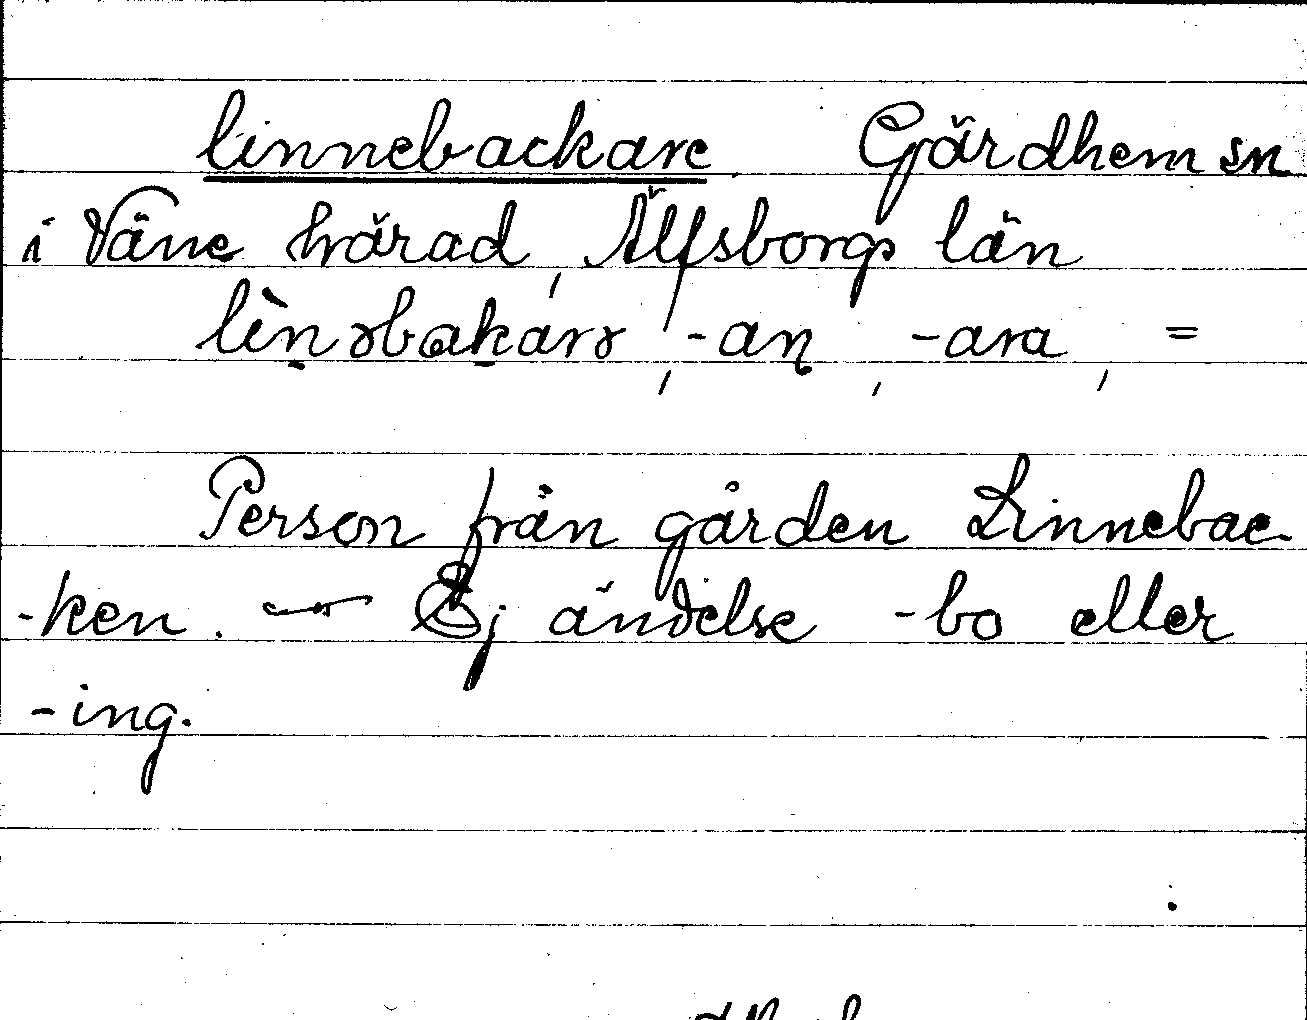 linnebackare Gärdhem sn
i Väne härad, Älfsborgs län
lìn̠ɤbak̠arɤ, -aɳ, -ara, =
Person från gården Linnebac-
-ken. — Ej ändelse -bo eller
-ing.